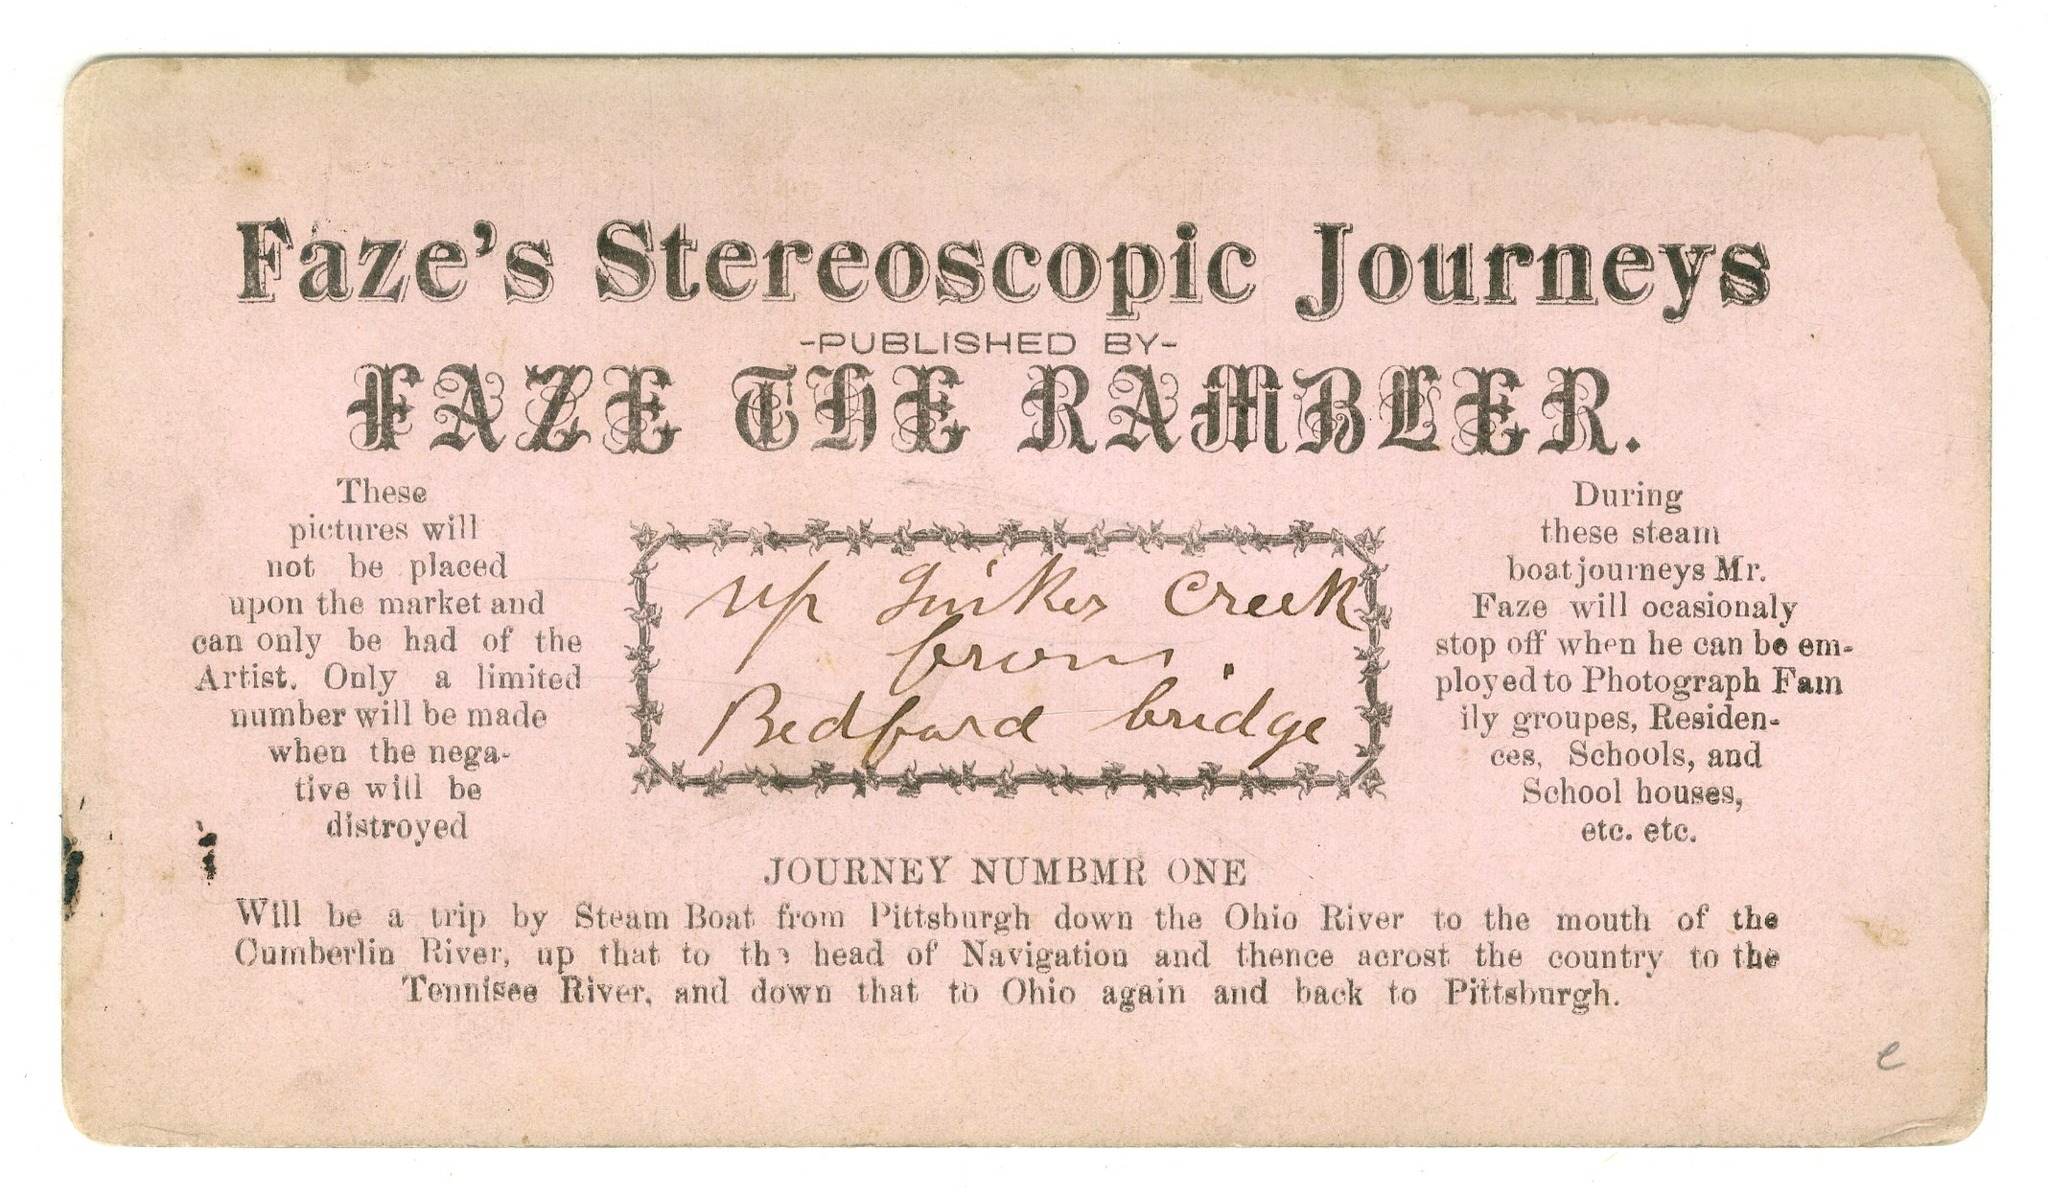 Faze's Stereoscopic Journeys
-PUBLISHED BY-
FAZE THE RAMBLER.
These
pictures will
not be placed
upon the market and
can only be had of the
Artist. Only a limited
number will be made
when the nega-
tive will be
distroyed
up Tinkers Creek
from
Bedford bridge
During
these steam
boat journeys Mr.
Faze will ocasionaly
stop off when he can be em-
ployed to Photograph Fam
ily groupes, Residen-
ces, Schools, and
School houses,
etc. etc.
JOURNEY NUMBMR ONE
Will be a trip by Steam Boat from Pittsburgh down the Ohio River to the mouth of the
Cumberlin River, up that to the head of Navigation and thence acrost the country to the
Tennisee River, and down that to Ohio again and back to Pittsburgh.
e